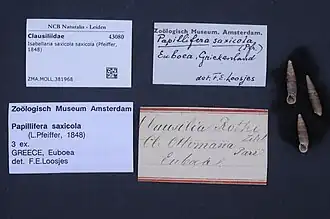 NCB Naturalis - Leiden
Clausiliidae 43080
Isabellaria saxicola saxicola (Pfeiffer, 1848)
ZMA.MOLL.381968
Zoölogisch Museum, Amsterdam.
Papillifera saxicola
(Pfr.)
Euboea, Griekenland
det. F.E. Loosjes
Zoölogisch Museum Amsterdam
Papillifera saxicola
(L.Pfeiffer, 1848)
3 ex.
GREECE, Euboea
det. F.E.Loosjes
Clausilia
Euboea